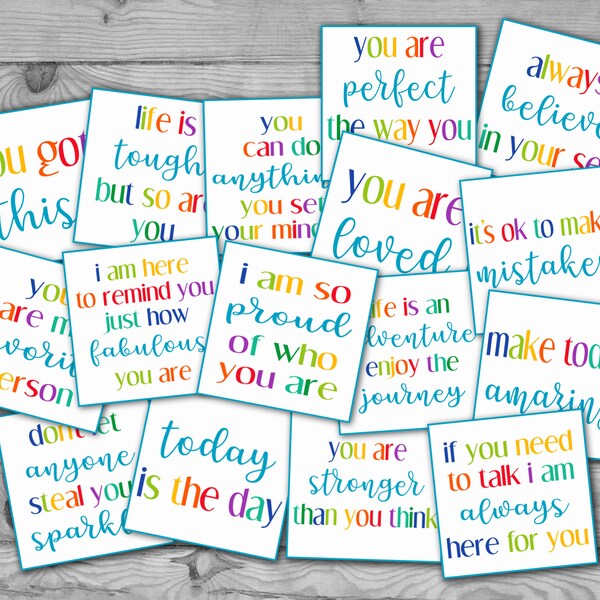 you are
perfect
the way you
always
believe
in your se
ou got
this
life is
tough
but so are
you
you
can do
anything
you set
your mind
you are
loved
it's ok to mak
mistake
you
are m
avorit
erson
i am here
to remind you
just how
fabulous
you are
i am so
proud
of who
you are
life is an
adventure
enjoy the
journey
make tod
amazing
don't let
anyone
steal you
sparkl
today
is the day
you are
stronger
than you think
if you need
to talk i am
always
here for you